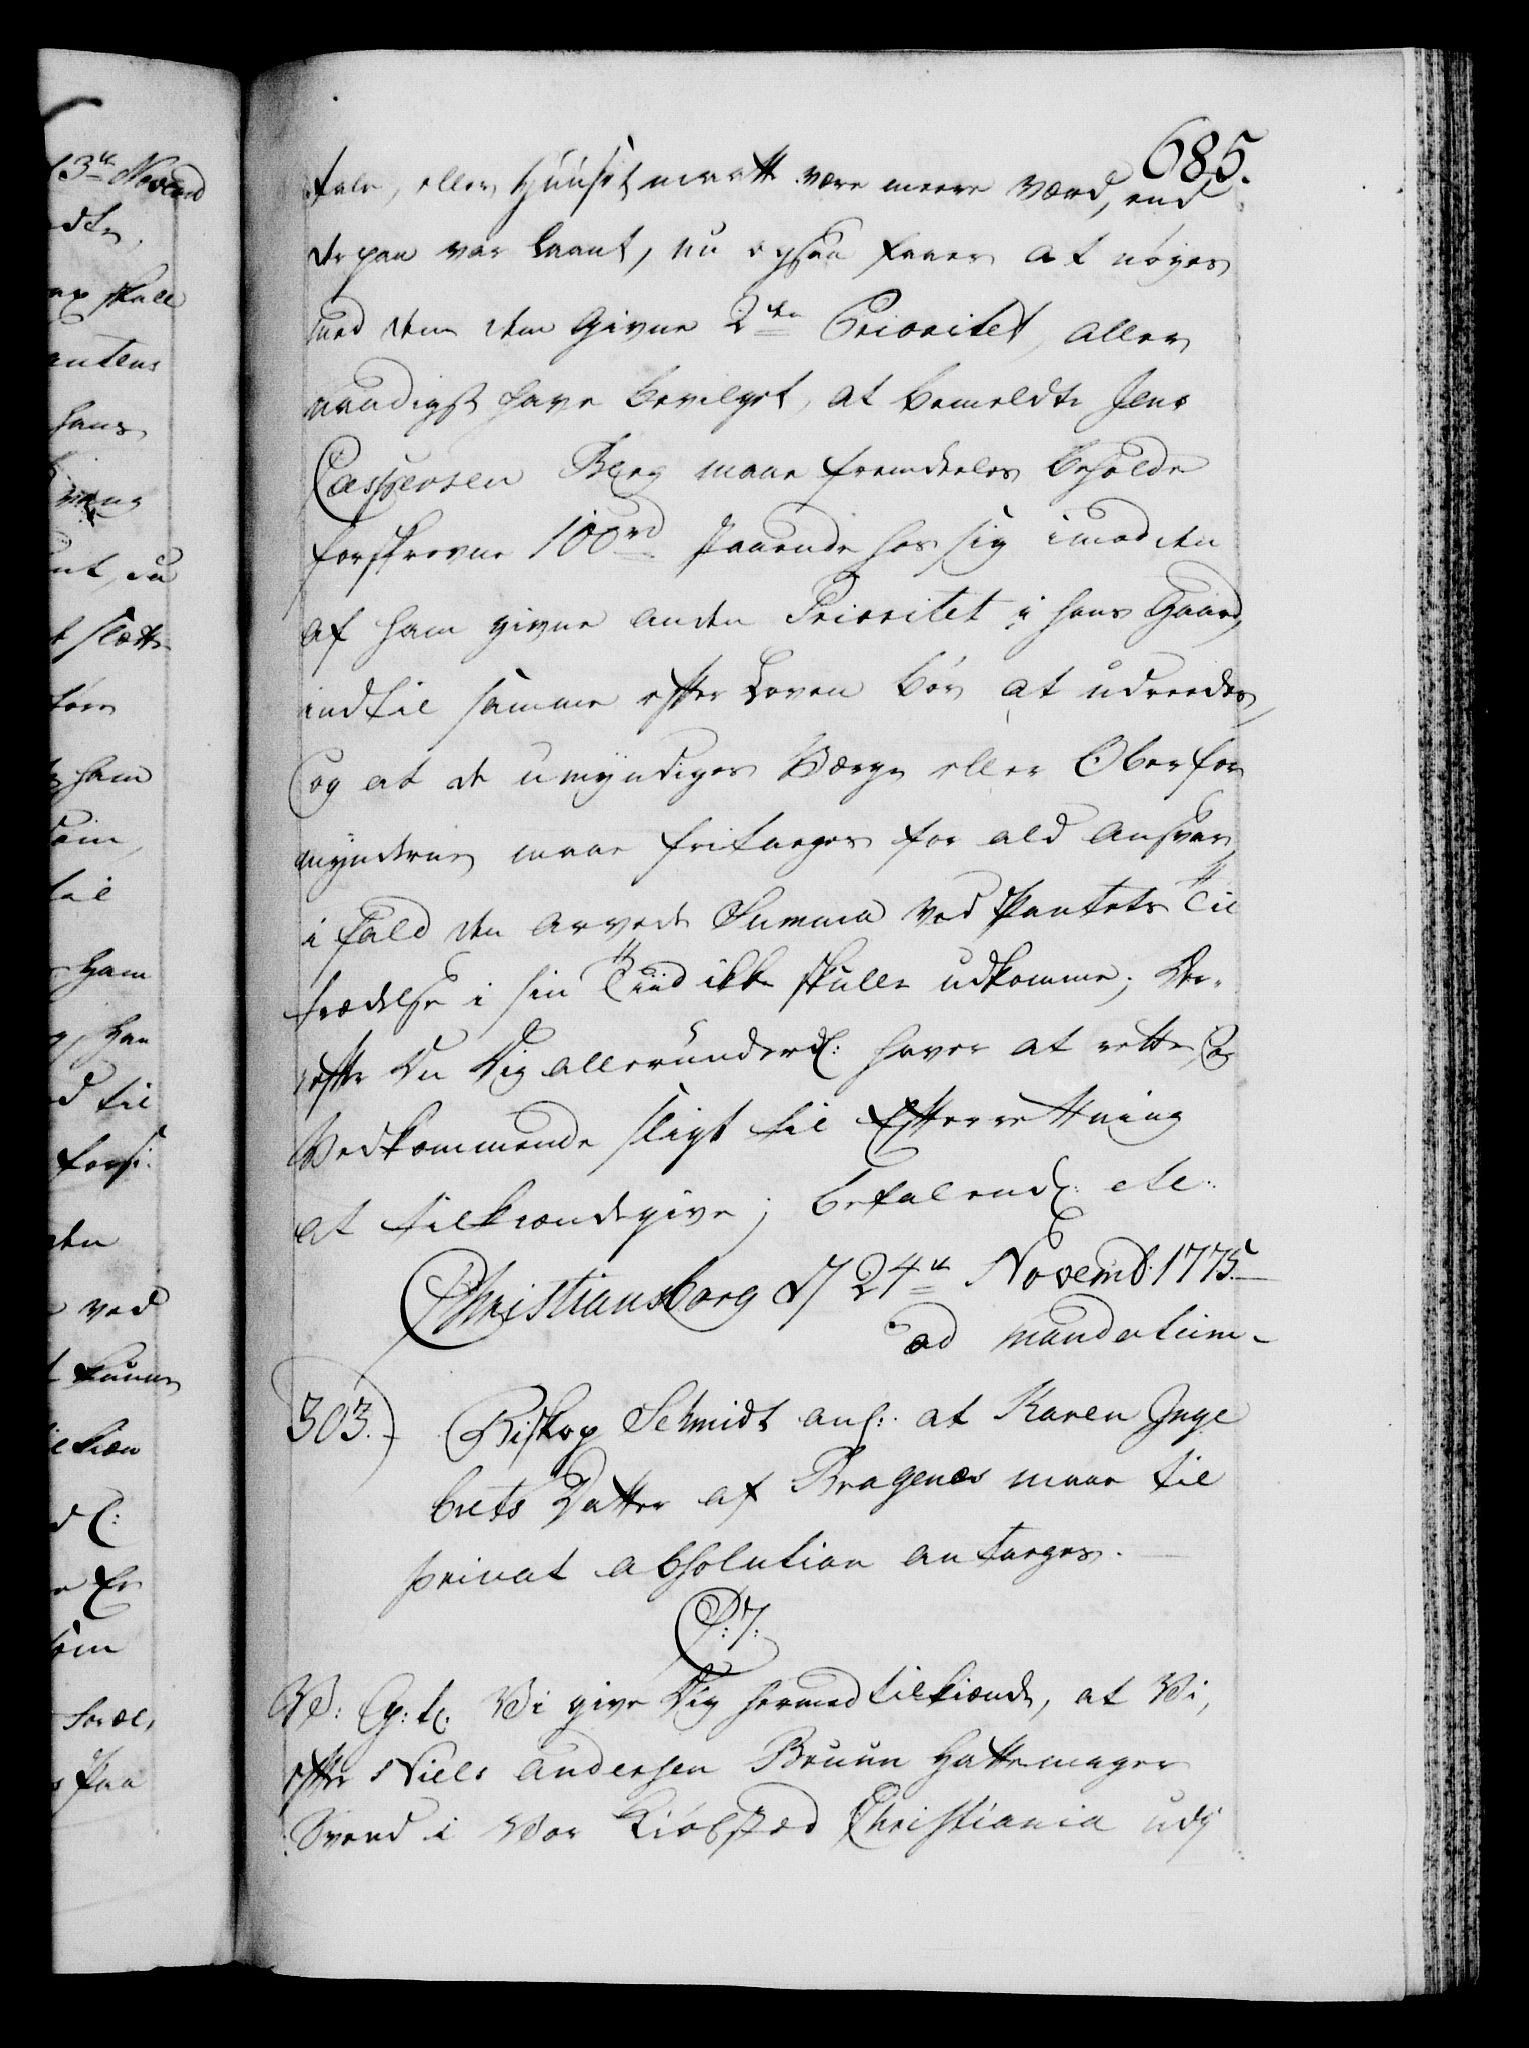 685.
tale, eller Huuset maatte være meere Værd, end
derpaa var laant, nu ogsaa faaer at nøyes
med den dem Givne 2den Prioritet, aller
naadigst have bevilget, at bemeldte Jens
Caspersen Berg maae fremdeeles beholde
forskrevne 100rd staaende hos sig imod den
af ham givne anden Prioritet i hans Gaard,
indtil samme efter Loven bør at udreedes,
og at de umyndiges Værge eller Oberfor
mynderne maae fritages for ald Ansvar,
i fald den arvede Summa ved Pantets Til
trædelse i sin Tiid ikke skulle udkomme; Der-
efter Du Dig allerunderd: haver at rette, og
Vedkommende sligt til Efterrettning
at tilkiendegive; befalend: etc:
Christiansborg d 24de Novemb: 1775.
ad mandatum-
303.) Biskop Schmidt anl: at Karen Inge
brets Datter af Bragenæs maae til
privat absolution antages.
C: 7:
V: G: t. Vi give Dig hermed tilkiende, at Vi,
efter Niels Andersen Bruun Hattemager
Svend i Vor Kiøbstæd Christiania udj